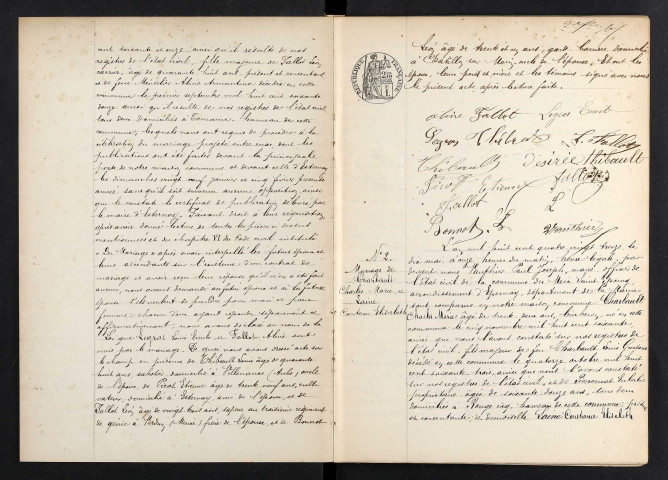 cent soixante et onze, ainsi qu'il résulte de nos
registres de l'état civil, fille majeure de Fallot Léon
carrier, âgé de quarante huit ans, présent et consentant
et de feue Aline Amantine, décédée en cette
commune le premier septembre mil huit cent soixante
douze ainsi qu'il résulte de nos registres de l'état civil,
tous deux domiciliés à hameau de cette
commune; lesquels nous ont requis de procéder à la
célébration du mariage projeté entre eux, dont les
publications ont été faites devant la principale
porte de notre maison commune et devant celle d'
les dimanches vingt neuf janvier et cinq février présente
année sans qu'il soit survenu aucune opposition, ainsi
que le constate le certificat de publication délivré par
le maire d' Faisant droit à leur réquisition
après avoir donné lecture de toutes les pièces ci dessus
mentionnées et du chapitre VI du Code civil intitulé
« Du Mariage » après avoir interpellé les futurs époux et
leurs ascendants sur l'existence d'un contrat de
mariage et avoir reçu leur réponse qu'il n'en a été fait
aucun, nous avons demandé au futur époux et à la future
épouse s'ils veulent se prendre pour mari et pour
femme; chacun d'eux ayant répondu séparément et
affirmativement, nous avons déclaré au nom de la
loi que Legros Louis Emile et Fallot Aline sont
unis par le mariage. Ce que nous avons dressé acte sur
le champ en présence de Thibault Louis âgé de quarante
huit ans, domicilié à Villenauxe (Aube), oncle
de l'époux, de Picot Etienne âgé de trente neuf ans, cultivateur,
domicilié à ami de l'époux, et de
Fallot Léon, âgé de vingt huit ans, sapeur au troisième régiment
de génie à Verdun, (Meuse) frère de l'épouse, et de Bonnot
RÉPUBLIQUE FRANÇAISE
Léon, âgé de trente et un ans, garde domicilié
à Châtillon sur Morin, oncle de l'épouse. Et ont les
époux, leurs père et mère et les témoins signé avec nous
le présent acte après lecture faite.
aline Fallot Legros Emile
Legros Thibault L. Fallot
Thibault désirée Thibault
Picot Etienne Fallot
Fallot L
Bonnot L. Gauthier
N° 2.
Mariage de
Charbault
Charles Marie et
Laine
Elisabeth
L'an mil huit cent quatre vingt treize le
dix mai, à onze heures du matin, heure légale, par
devant nous Gauthier Paul Joseph, maire, officier de
l'état civil de la commune du
arrondissement d'Epernay, département de la Marne
sont comparus en notre maison commune Charbault
Charles Marie âgé de trente deux ans, né en cette
commune le cinq novembre mil huit cent soixante,
ainsi que nous l'avons constaté sur nos registres de
l'état civil, fils majeur de feu Charbault Louis Gustave
décédé en cette commune le quatorze octobre mil huit
cent soixante trois, ainsi que nous l'avons constaté
sur nos registres de l'état civil, et de
propriétaire âgée de soixante douze ans, tous deux
domiciliés à hameau de cette commune, présente
et consentante, et demoiselle Laine Elisabeth